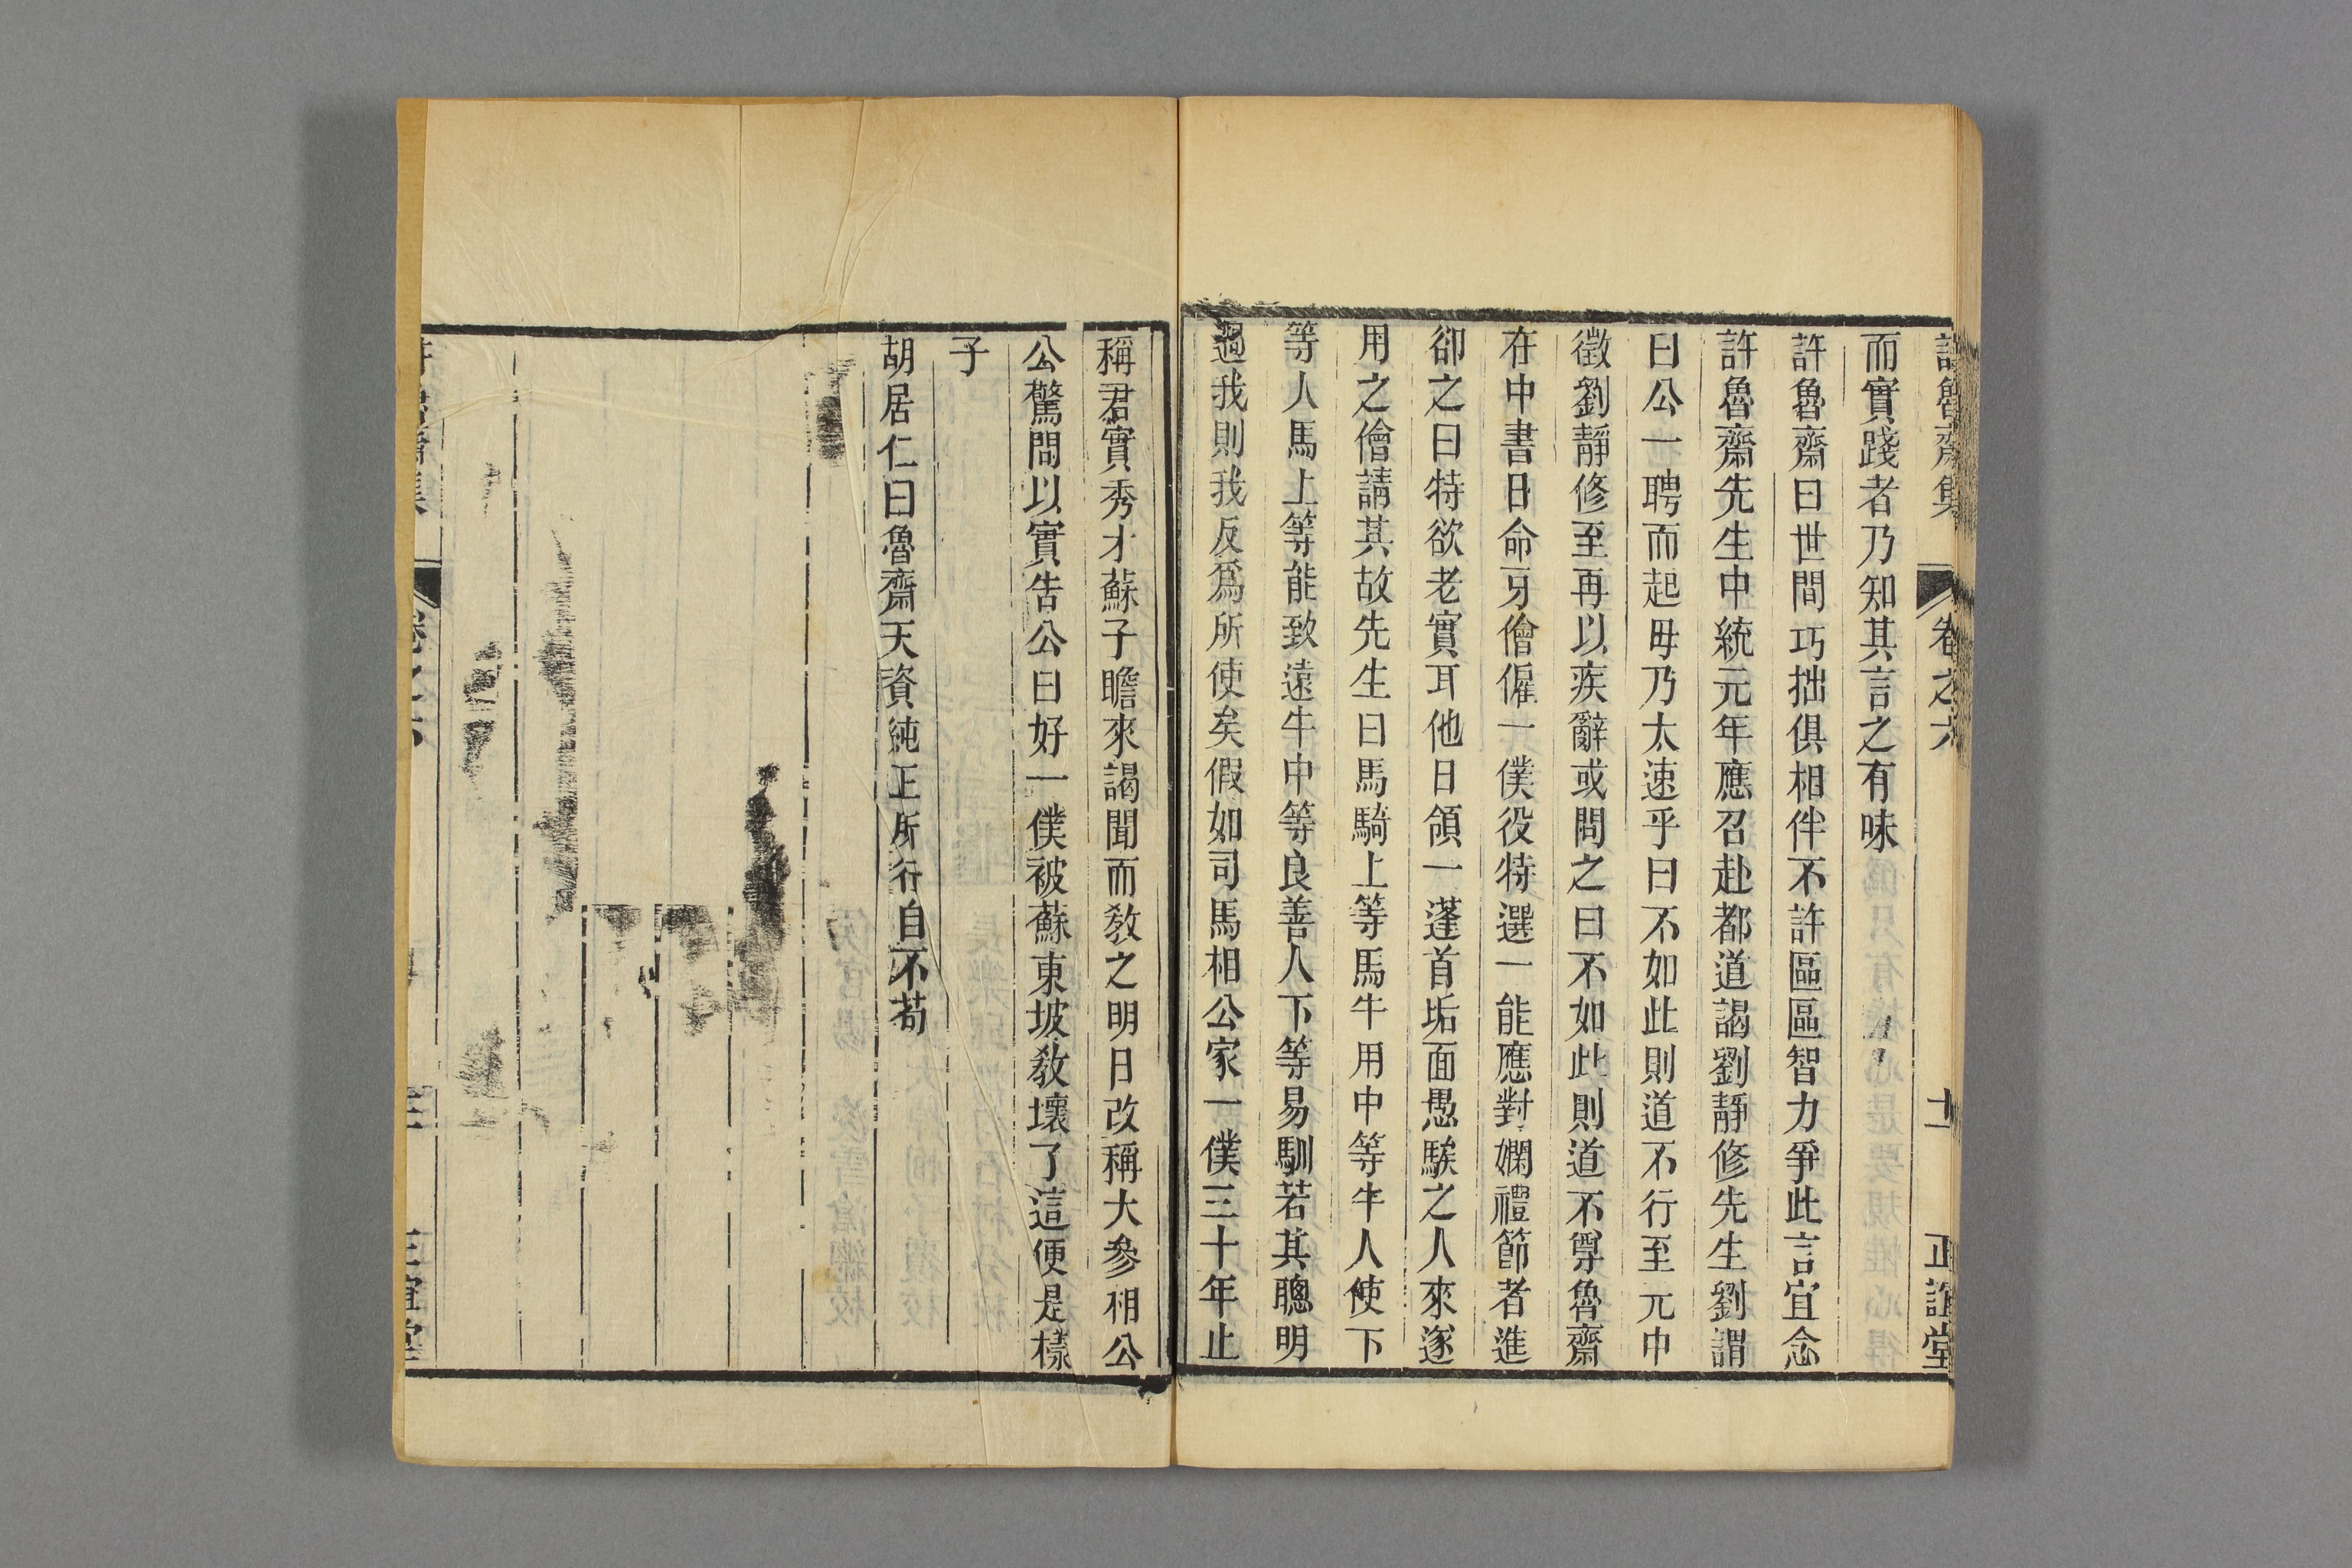 許魯齋集 卷之六 十一 正誼堂
而實踐者乃知其言之有味
許魯齋曰世間巧拙俱相伴不許區區智力爭此言宜念
許魯齋先生中統元年應召赴都道謁劉靜修先生劉謂
曰公一聘而起毋乃太速乎曰不如此則道不行至元中
徵劉靜修至再以疾辭或問之曰不如此則道不尊魯齋
在中書日命牙儈僱一僕役特選一能應對嫻禮節者進
卻之曰特欲老實耳他日領一蓬首垢面愚騃之人來遂
用之儈請其故先生曰馬騎上等馬牛用中等牛人使下
等人馬上等能致遠牛中等良善人下等易馴若其聰明
過我則我反為所使矣假如司馬相公家一僕三十年止
稱君實秀才蘇子瞻來謁聞而敎之明日改稱大參相公
公驚問以實告公曰好一僕被蘇東坡敎壞了這便是樣
子
胡居仁曰魯齋天資純正所行自不苟